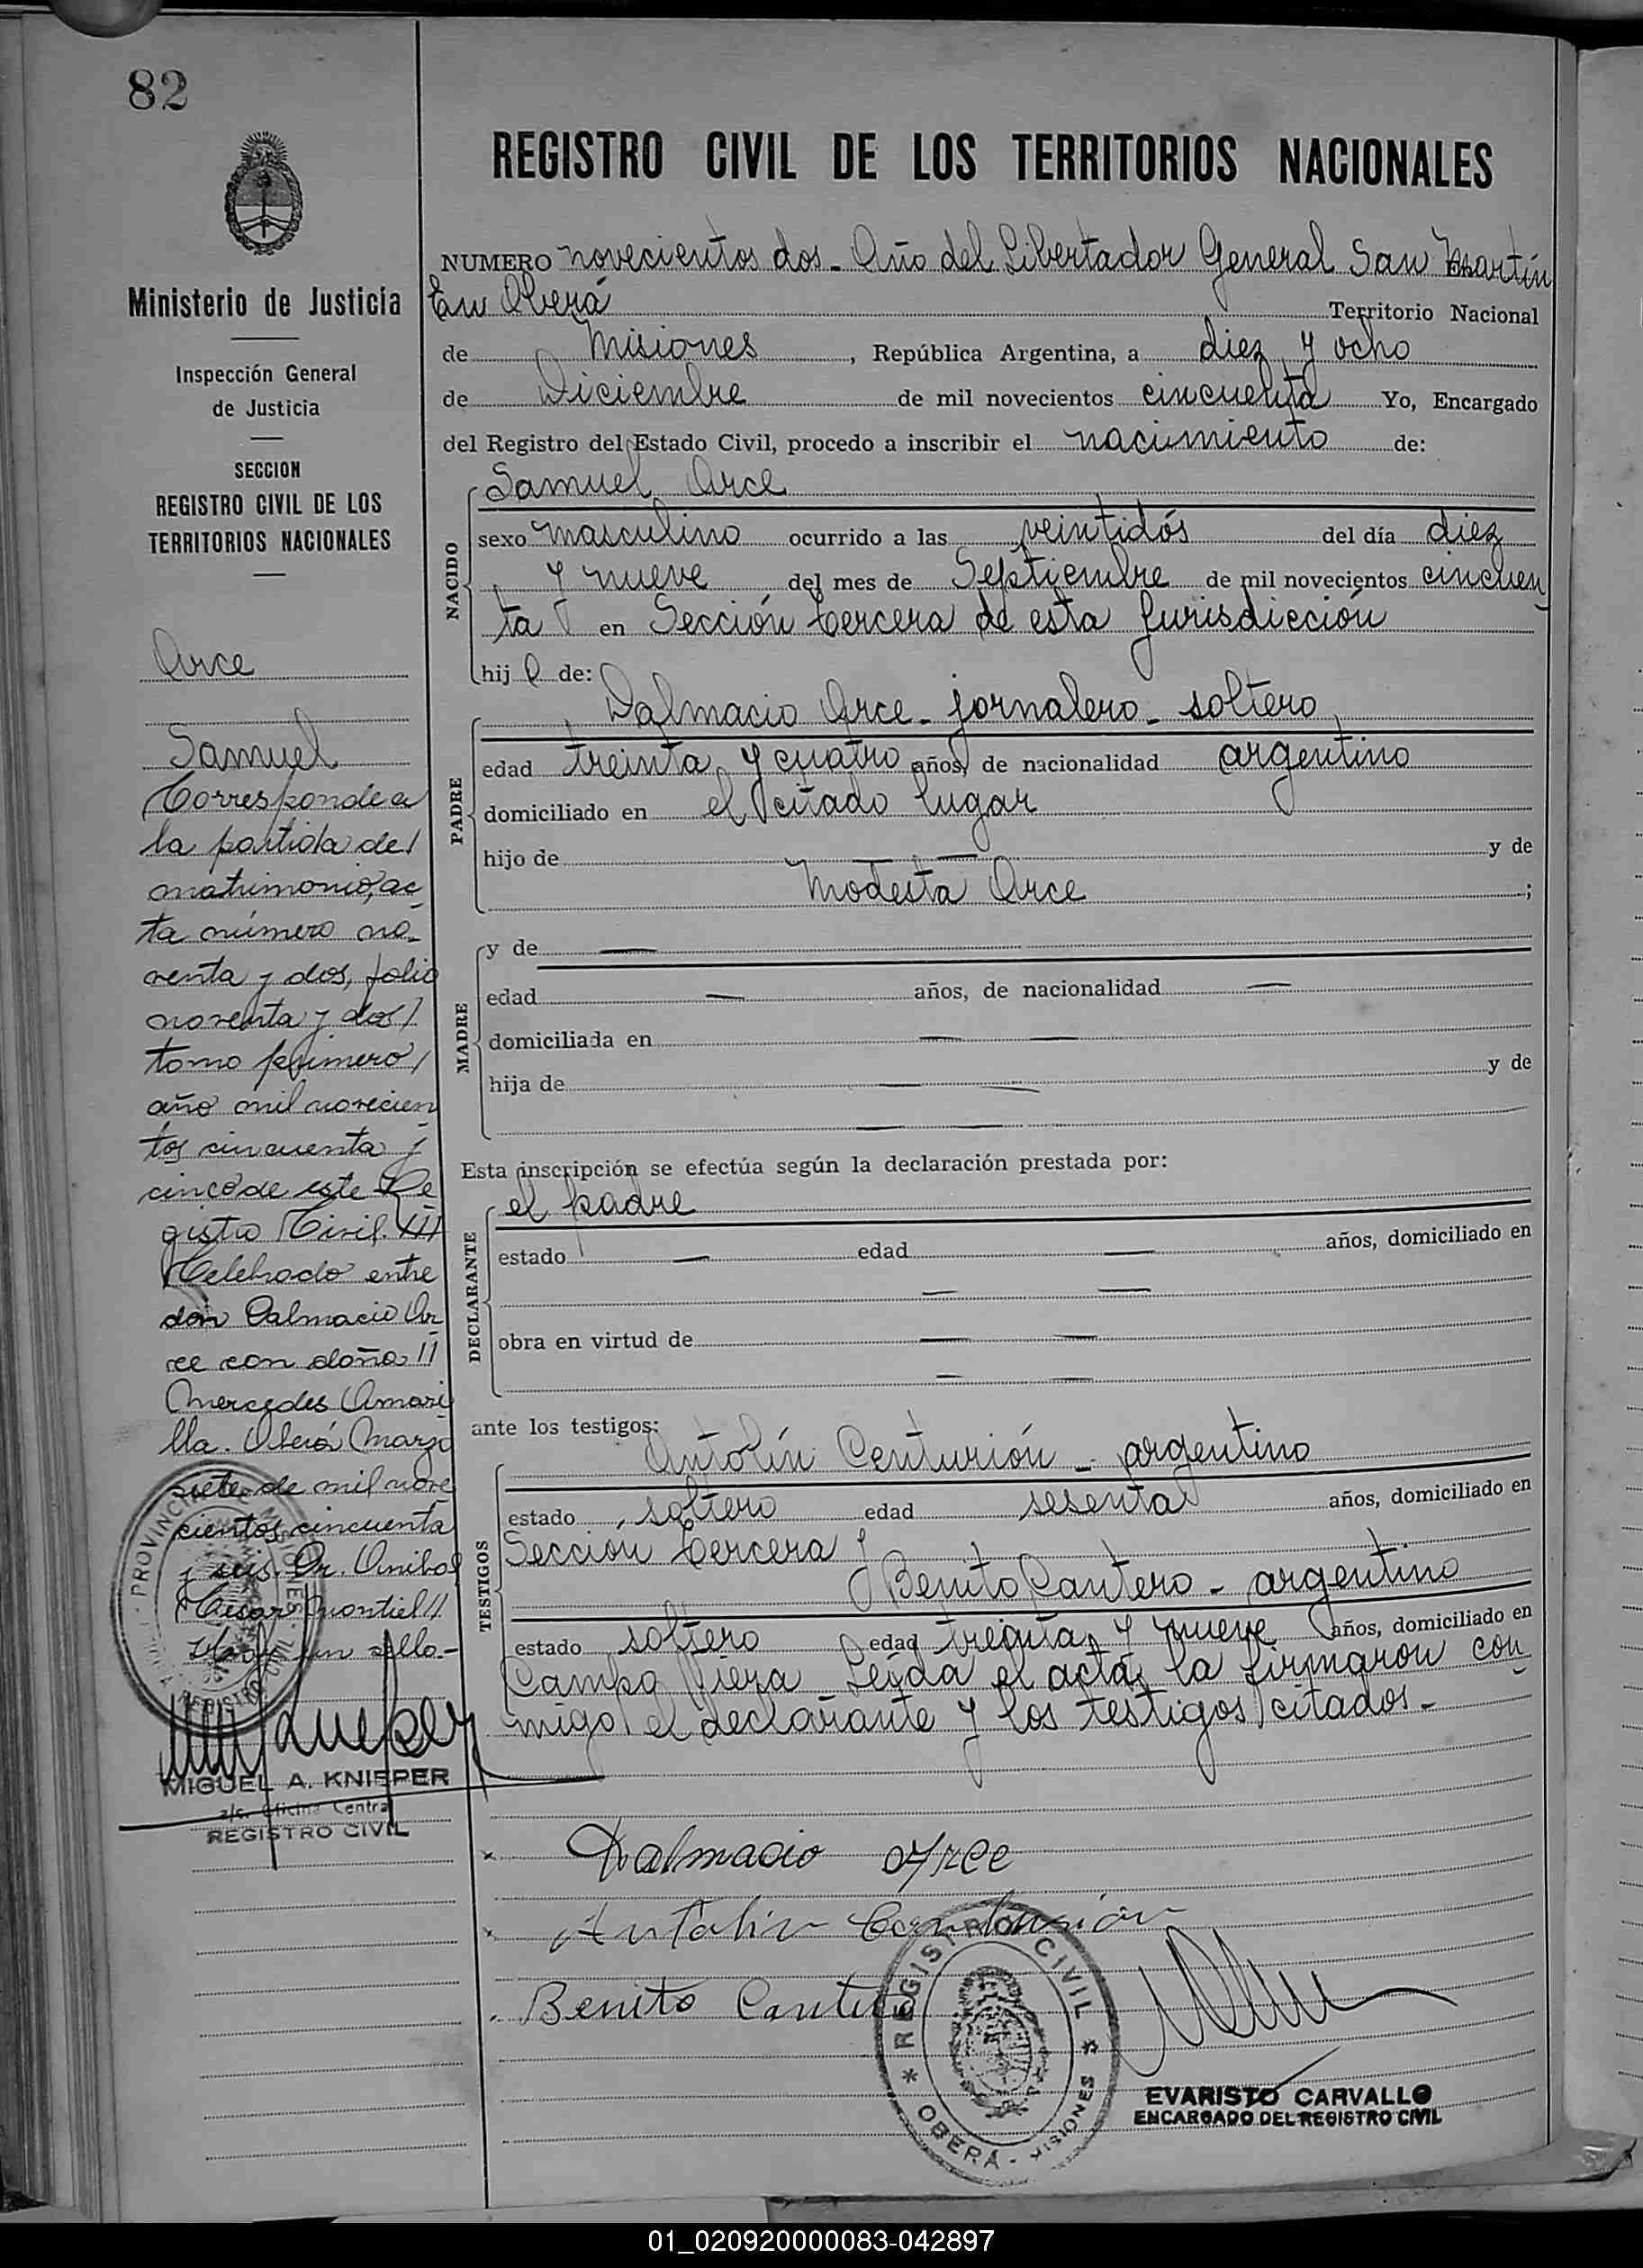 82
Ministerio de Justicia
Inspección General
de Justicia
SECCION
REGISTRO CIVIL DE LOS
TERRITORIOS NACIONALES
Arce
Samuel
Corresponde a
la partida de/
matrimonio, ac
ta número no-
venta y dos, folio
noventa y dos/
tomo primero/
año mil novecien
tos cincuenta y
cinco de este Re
gistro Civil. ///
Celebrado entre
don Dalmacio Ar
ce con doña //
Mercedes Amari
lla. Oberá Marzo
siete de mil nove
cientos cincuenta
y seis. Dr. Anibal
Cesar Montiel //
Hay un sello.-
PROVINCIA DE MISIONES
REGISTRO
MIGUEL A. KNIEPER
a/c. Oficina Central
REGISTRO CIVIL
REGISTRO CIVIL DE LOS TERRITORIOS NACIONALES
NUMERO novecientos dos - Año del Libertador General San Martín
En Oberá Territorio Nacional
de Misiones, República Argentina, a diez y ocho
de Diciembre de mil novecientos cincuenta Yo, Encargado
del Registro del Estado Civil, procedo a inscribir el nacimiento de:
NACIDO
Samuel Arce
sexo masculino ocurrido a las veintidós del día diez
y nueve del mes de Septiembre de mil novecientos cincuen
ta en Sección tercera de esta jurisdicción
hijo de:
PADRE
Dalmacio Arce - jornalero - soltero
edad treinta y cuatro años, de nacionalidad argentino
domiciliado en el citado lugar
hijo de — y de
Modesta Arce ;
MADRE
y de —
edad — años, de nacionalidad —
domiciliada en — —
hija de — — y de
— —
Esta inscripción se efectúa según la declaración prestada por:
DECLARANTE
el padre
estado — edad — años, domiciliado en
— —
obra en virtud de — —
— —
ante los testigos:
TESTIGOS
Antolín Centurión - argentino
estado soltero edad sesenta años, domiciliado en
Sección tercera y
Benito Cantero - argentino
estado soltero edad treinta y nueve años, domiciliado en
Campo Viera Leída el acta, la firmaron con
migo el declarante y los testigos citados.-
Dalmacio Arce
Antolin Centurión
Benito Cantero
REGISTRO CIVIL
* OBERÁ - MISIONES *
EVARISTO CARVALLO
ENCARGADO DEL REGISTRO CIVIL
01_020920000083-042897